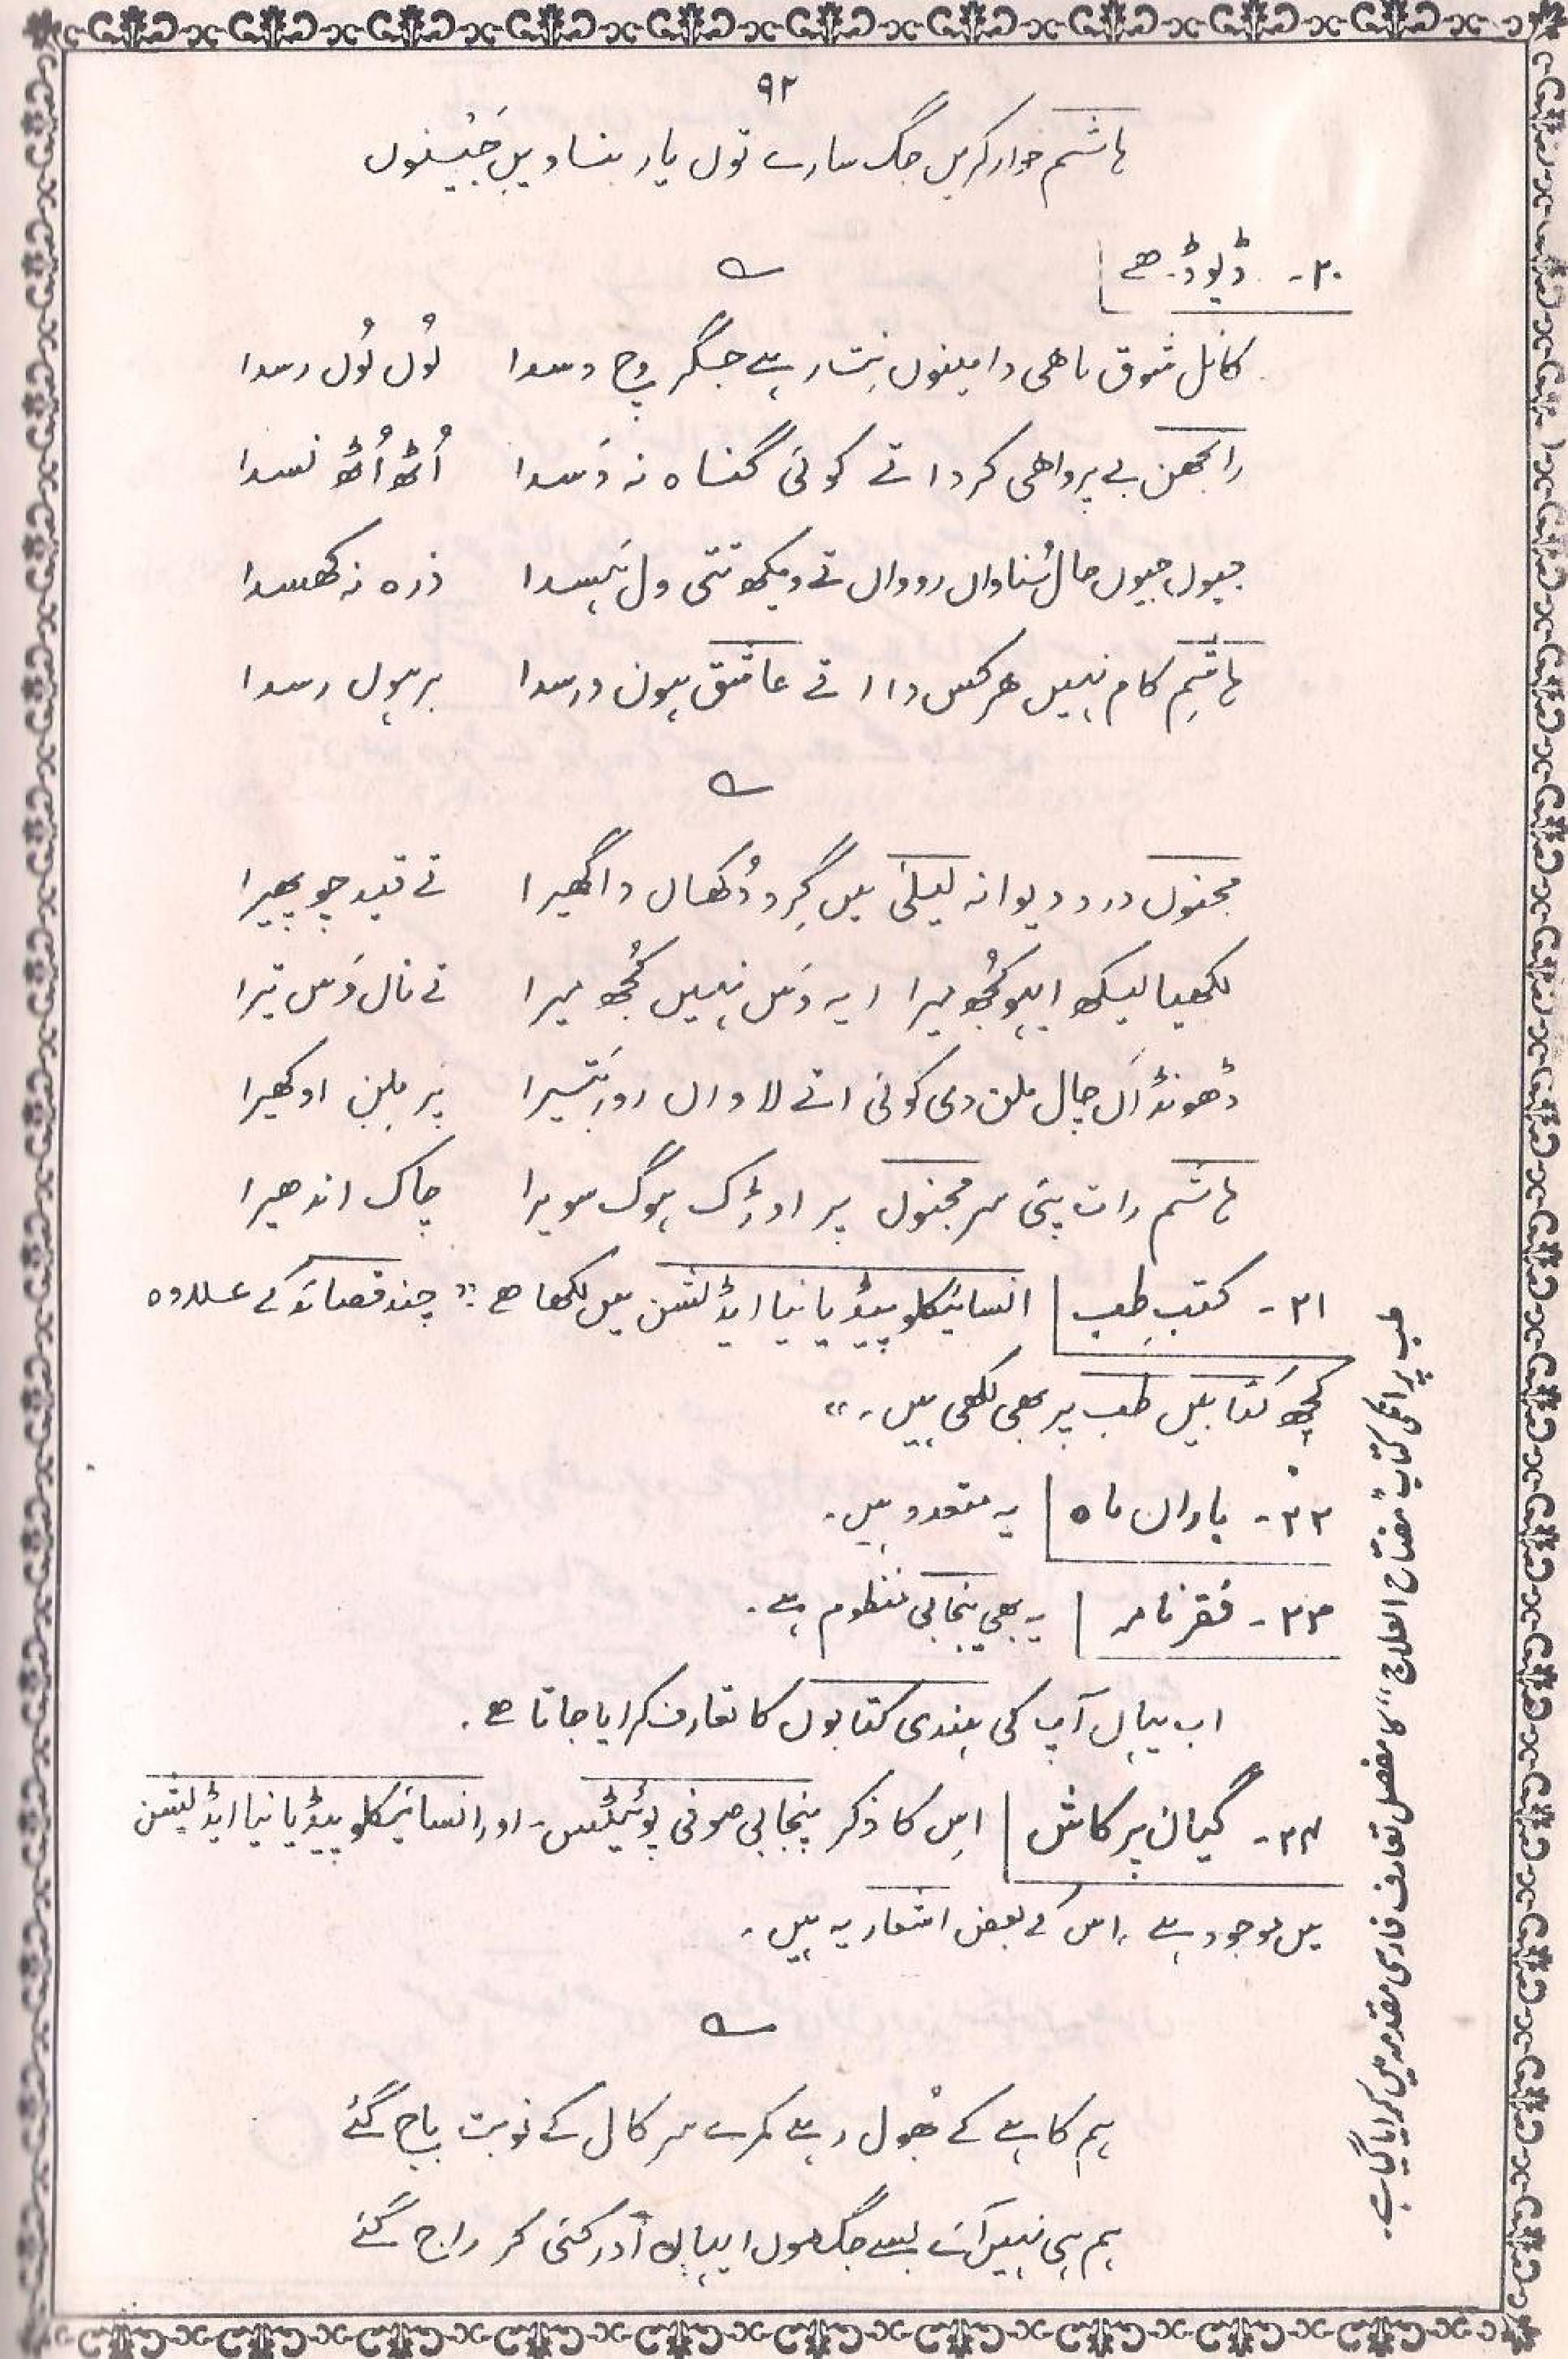 ۹۲
ہاشم خوار کریں جگ سارے توں یار بناویں جَیْنوں
۲۰۔ ڈیوڈھے
کانل شوق ماھی دا مینوں نِت رہے جگر وِچ وسدا لُوں لُوں رسدا
رانجھن بے پرواھی کردا تے کوئی گناہ نہ دَسدا اُٹھ اُٹھ نسدا
جیوں جیوں حال سُناواں روواں تے ویکھ تتی ول ہَسدا ذرہ نہ کھسدا
ہاشم کام نہیں ھر کس دا اتے عاشق ہون درسدا برہوں رسدا
مجنوں درد دیوانہ لیلیٰ میں گِرد دُکھاں دا گھیرا تے قید چوپھیرا
لکھیا لیکھ ایہو کُجھ میرا ایہ وَس نہیں کُجھ میرا تے نال وَس تیرا
ڈھونڈ اَک چال ملن دی کوئی اتے لاواں زور بَتیرا پَر مِلن اوکھیرا
ہاشم رات پئی سر مجنوں پر اوڑک ہوگ سویرا چاک اندھیرا
۲۱۔ کتبِ طِب انسائیکلو پیڈیا نیا ایڈیشن میں لکھا ھے "چند قصائد کے علاوہ
کچھ کتابیں طب پر بھی لکھی ہیں۔"
۲۲۔ باراں ماہ یہ متعدد ہیں۔
۲۳۔ فقرنامہ یہ بھی پنجابی منظوم ہے۔
اب یہاں آپ کی ہندی کتابوں کا تعارف کرایا جاتا ھے۔
۲۴۔ گیان پرکاش اِس کا ذکر پنجابی صوفی پوئیٹس۔ اور انسائیکلو پیڈیا نیا ایڈیشن
میں موجود ہے۔ اس کے بعض اشعار یہ ہیں۔
ہم کاہے کے بُھول رہے ہمرے سر کال کے نوبت باج گئے
ہم ہی نہیں آئے بسے جگ موں ایہاں اَور کئی کر راج گئے
طب پر انکی کتاب "مفتاح العلاج" کا مفصل تعارف فارسی مقدمہ میں کرایا گیا ہے۔